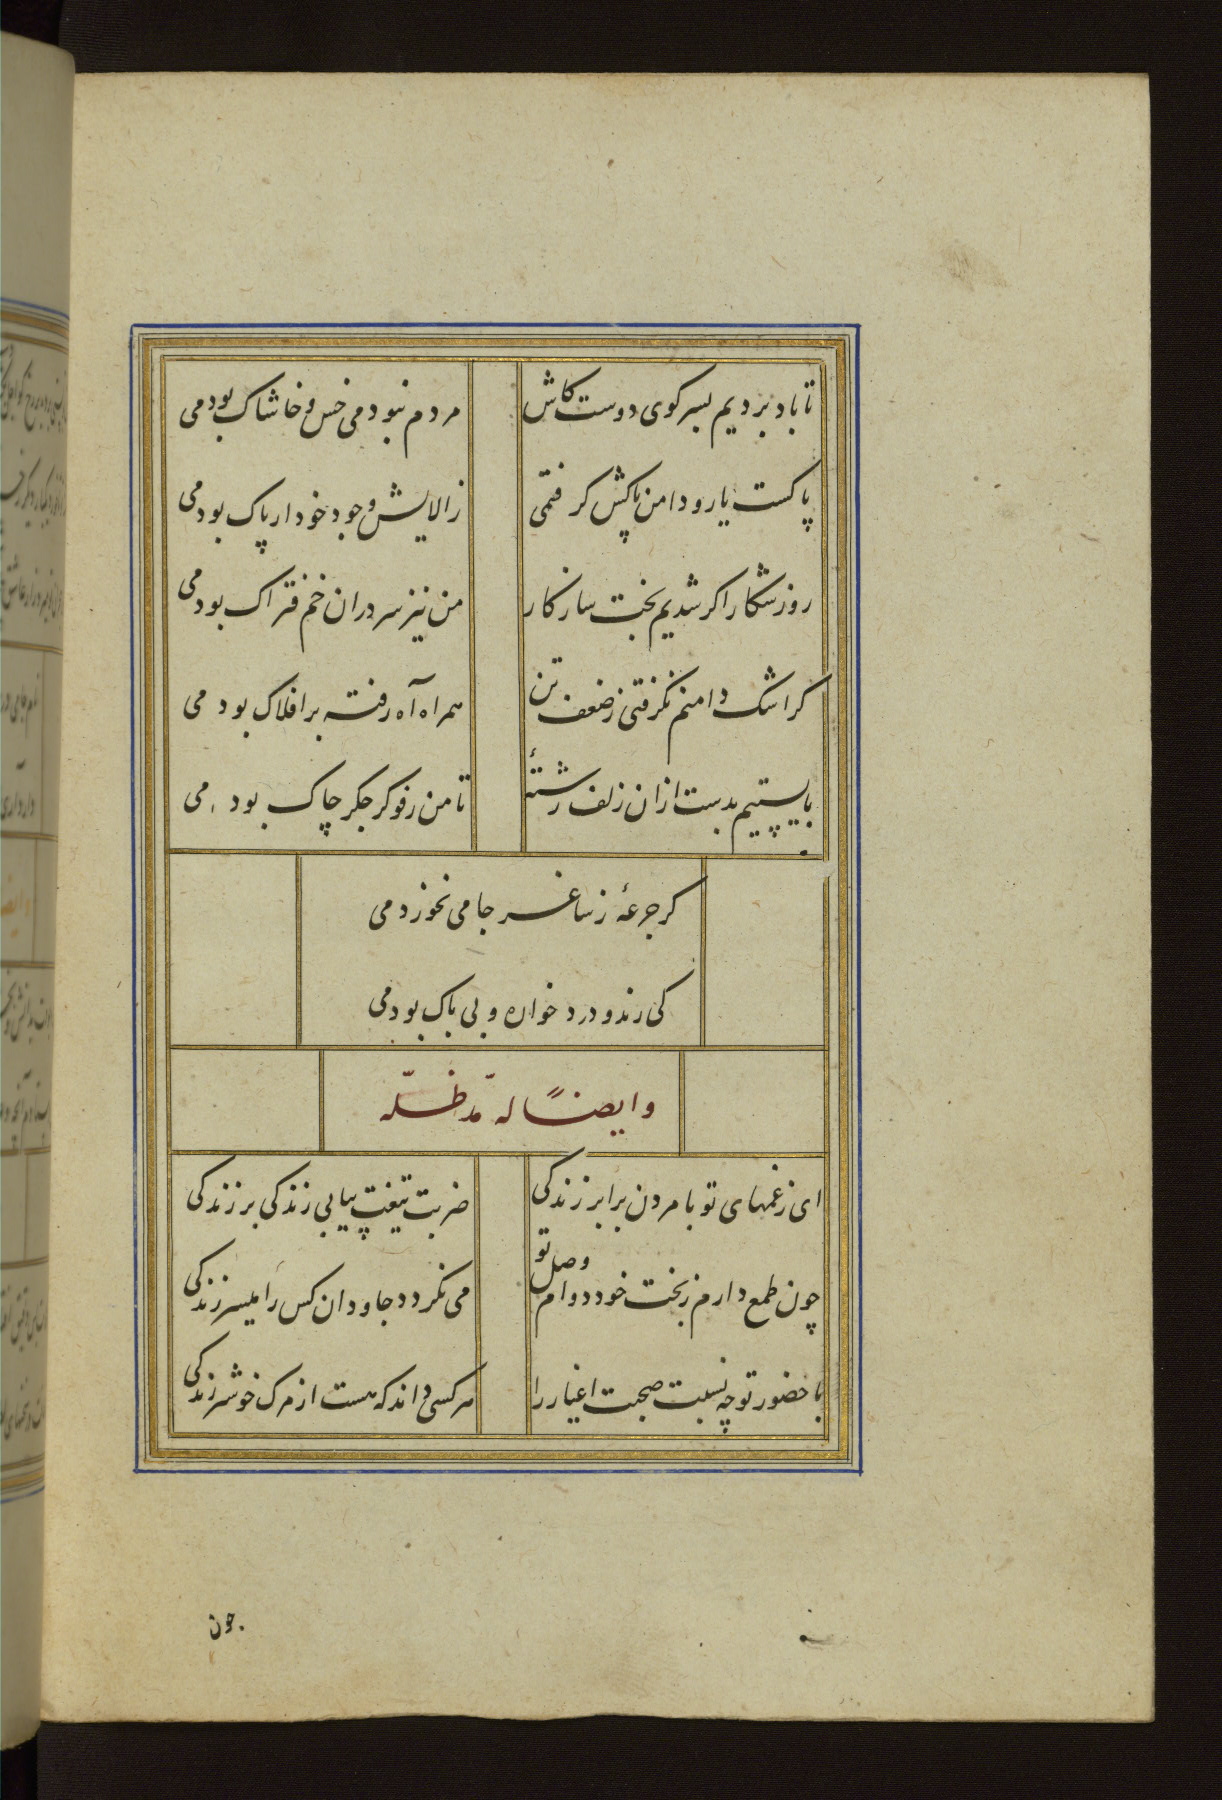 تا باد بردیم بسر کوی دوست کاش
مردم نبودمی خس و خاشاک بودمی
پاکست یار و دامن پاکش کرفتمی
ز الایش وجود خود ار پاک بودمی
روز شکار اکر شدیم بخت سازکار
من نیز سر دران خم فتراک بودمی
کر اشک دامنم نکرفتی ز ضعف تن
همراه آه رفته بر افلاک بودمی
بایستیم بدست ازان زلف رشتهٔ
تا من رفوکر جکر چاک بودمی
کر جرعهٔ ز ساغر جامی نخوردمی
کی رند و درد خواره و بی باک بودمی
و ایضًا له مدّ ظلّه
ای ز غمهای تو با مردن برابر زندکی
ضربت تیغت پیاپی زندکی بر زندکی
چون طمع دارم ز بخت خود دوام وصل تو
می نکردد جاودان کس را میسر زندکی
با حضور تو چه نسبت صحبت اغیار را
هر کسی داند که هست از مرک خوشتر زندکی
چون